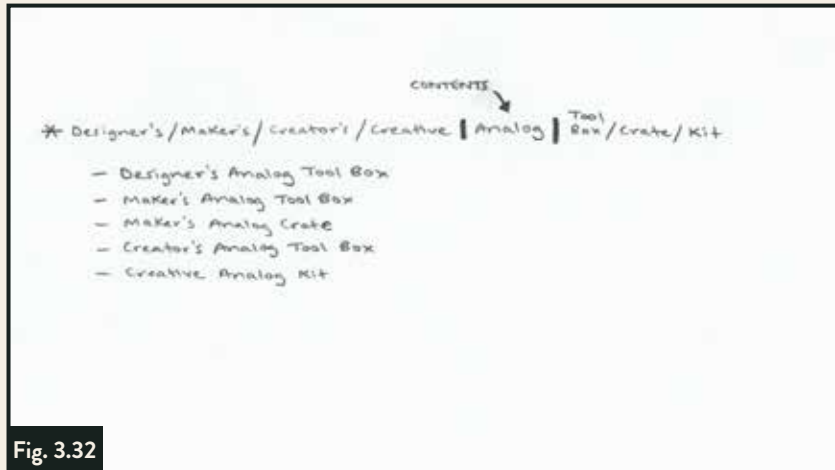 CONTENTS
* Designer's/Maker's/Creator's/Creative | Analog | Tool Box/Crate/Kit
– Designer's Analog Tool Box
– Maker's Analog Tool Box
– Maker's Analog Crate
– Creator's Analog Tool Box
– Creative Analog Kit
Fig. 3.32